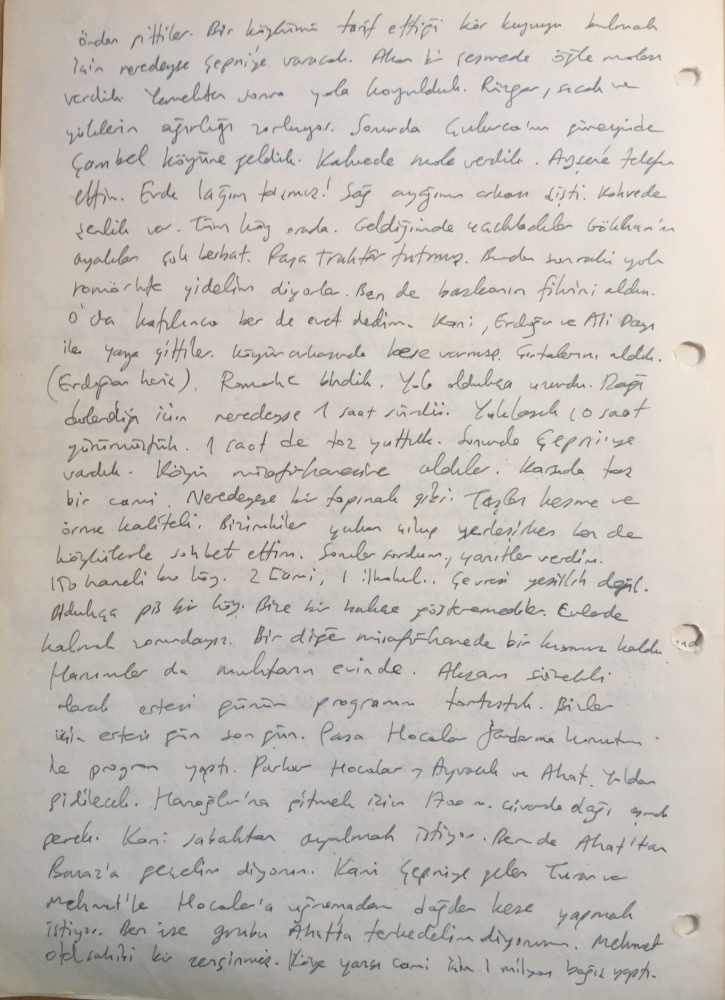 önden gittiler. Bir köylünün tarif ettiği kör kuyuyu bulmak
için neredeyse Çepni'ye varacak. Akan bir çeşmede öğle molası
verdik. Yemekten sonra yola koyulduk. Rüzgar, sıcak ve
yüklerin ağırlığı zorluyor. Sonunda güneyinde
Çambel köyüne geldik. Kahvede mola verdik. Ayşene telefon
ettim. Evde lağım taşmış! Sağ ayağımın arkası şişti. Kahvede
şenlik var. Tüm köy orada. Geldiğimde Gökhan'ın
ayakları çok berbat. Paşa traktör tutmuş. Bundan sonraki yolu
romörkte gidelim diyorlar. Ben de başkanın fikrini aldım.
O da katılınca ben de evet dedim. Kani, Erdoğan ve Ali Dayı
ile yaya gittiler. Köyün arkasında kese varmış. Çantalarını aldık.
(Erdoğan hariç). Romörke bindik. Yol oldukça uzundu. Dağı
dolandığı için neredeyse 1 saat sürdü. Yaklaşık 10 saat
yürümüştük. 1 saat de toz yuttuk. Sonunda Çepni'ye
vardık. Köyün misafirhanesine aldılar. Karşıda taş
bir cami. Neredeyse bir tapınak gibi. Taşlar kesme ve
örme kaliteli. Bizimkiler yukarı çıkıp yerleşirken ben de
köylülerle sohbet ettim. Sorular sordum, yanıtlar verdim.
150 haneli bu köy. 2 Cami, 1 ilkokul.. Çevresi yeşillik değil.
Oldukça pis bir köy. Bize bir bahçe gösteremediler. Evlerde
kalmak zorundayız. Bir diğer misafirhanede bir kısmımız kaldı.
Hanımlar da muhtarın evinde. Akşam sürekli
olarak ertesi günün programını tartıştık. Bizler
için ertesi gün son gün. Paşa Hocalar Jandarma komutanı
ile program yaptı. Parkur Hocalar, Ayvacık ve Ahat. Yoldan
gidilecek. Hanoğlu'na gitmek için 1700 m. civarda dağı aşmak
gerek. Kani sabahtan ayrılmak istiyor. Ben de Ahat'tan
Banaz'a geçelim diyorum. Kani Çepniye gelen Turan ve
Mehmet'le Hocalar'a uğramadan dağdan kese yapmak
istiyor. Ben ise grubu Ahatta terkedelim diyorum. Mehmet
otel sahibi bir zenginmiş. Köye yarışı cami için 1 milyon bağış yaptı.